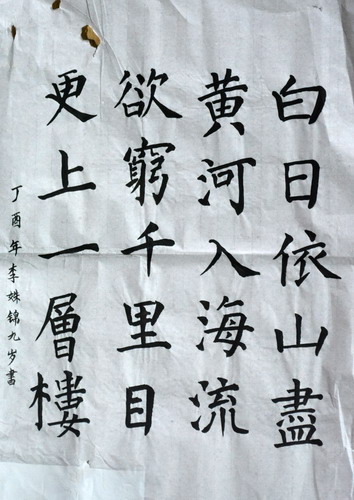 白日依山盡
黃河入海流
欲窮千里目
更上一層樓
丁酉年李姝錦九岁書